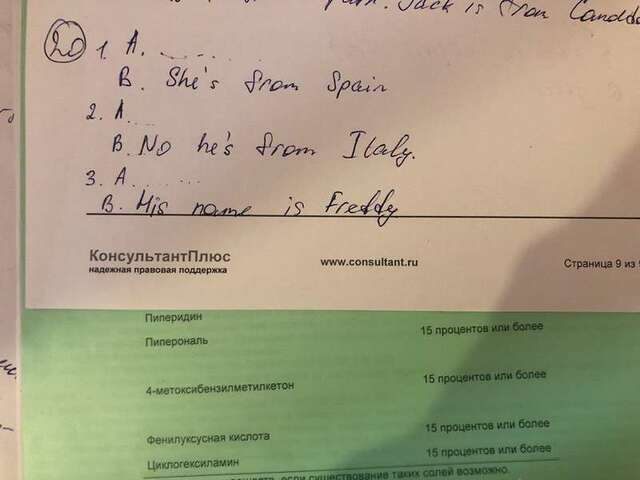 Jack is from Canada
20 1. A. .........
B. She's from Spain
2. A. ...
B. No he's from Italy.
3. A. .......
B. His name is Freddy
КонсультантПлюс
надежная правовая поддержка
www.consultant.ru
Страница 9 из
Пиперидин
15 процентов или более
Пиперональ
4-метоксибензилметилкетон
15 процентов или более
Фенилуксусная кислота
15 процентов или более
Циклогексиламин
15 процентов или более
если существование таких солей возможно.